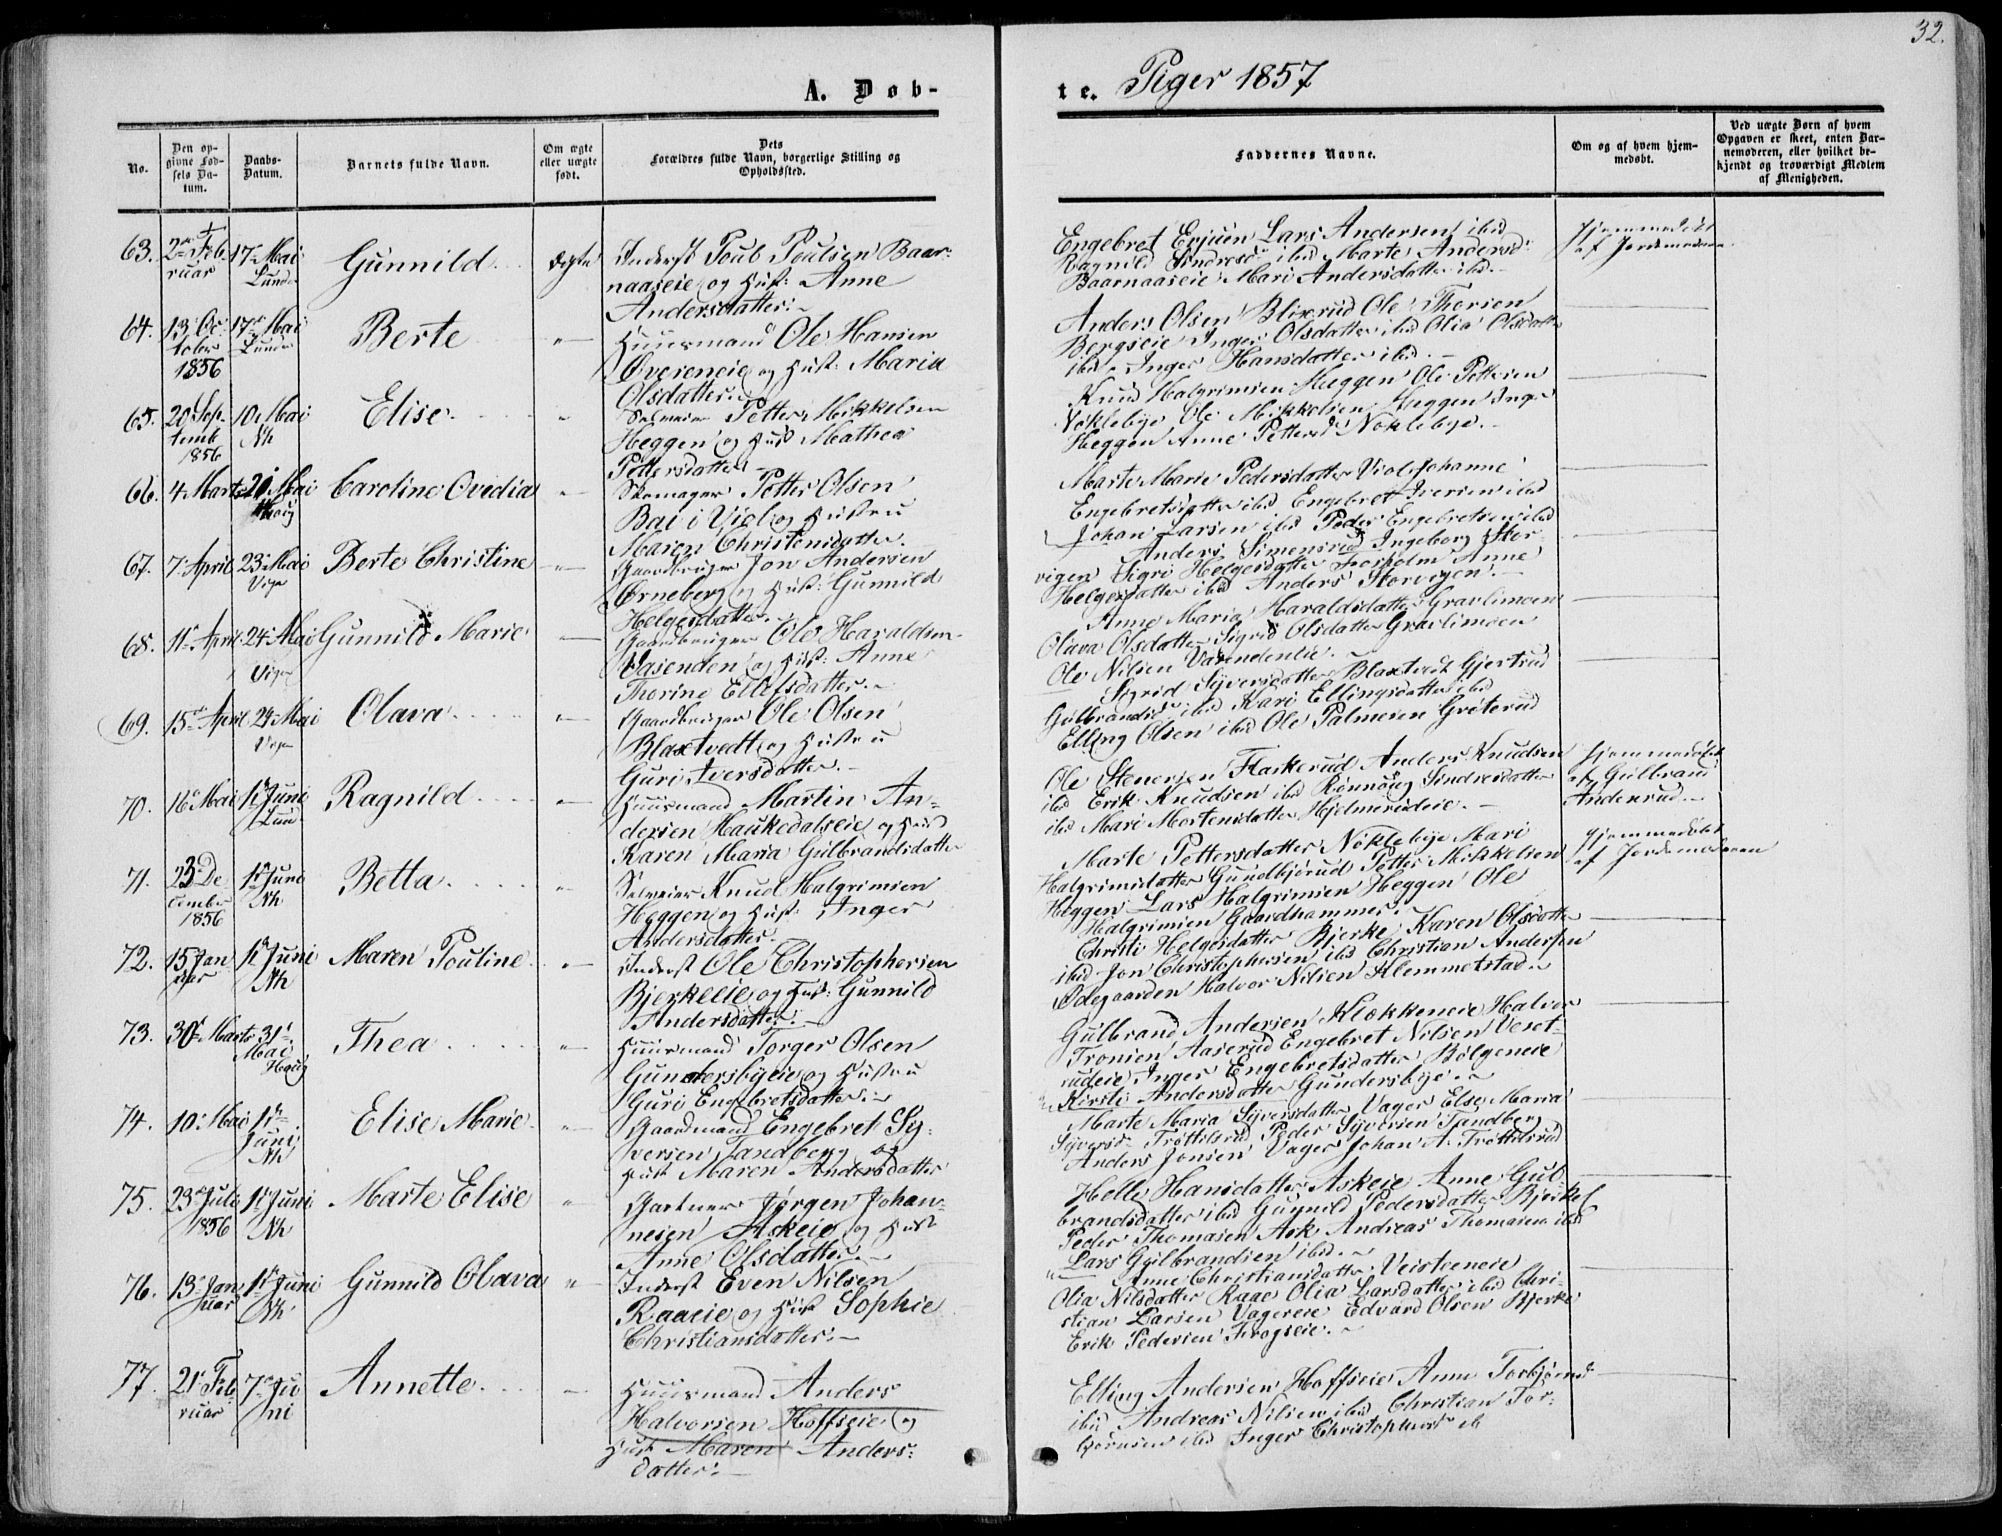 32.
A. Døb-
te. Piger 1857
No.
Den op-
givne Fød-
sels Da-
tum.
Daabs-
Datum.
Barnets fulde Navn.
Om ægte
eller uægte
født.
Dets
Forældres fulde Navn, borgerlige Stilling og
Opholdssted.
Faddernes Navne.
Om og af hvem hjem-
medøbt.
Ved uægte Børn af hvem
Opgaven er skeet, enten Bar-
nemoderen, eller hvilket be-
kjendt og troværdigt Medlem
af Menigheden.
63. 2 Feb
ruar
17 Mai
Lunde
Gunnild
ægte
Inderst Poul Poulsen Baar-
naaseie og Hust: Anne
Andersdatter.
Engebret Lars Andersen ibid
Ragnild ibid Marte Andersd
Baarnaaseie Mari Andersdatter ibd.
Hjemmedøbt
af Jordemoderen
64. 13 Oc
tober
1856
17 Mai
Lunde
Berte
Huusmand Ole Hansen
Øvereneie og Hust: Maria
Olsdatter
Anders Olsen Blixrud Ole
Bergseie Inger Olsdatter ibid Olia Olsdatter
ibid Inger Hansdatter ibid.
65. 20 Sep
temb
1856
10 Mai
Nh
Elise
Selveier Petter Mikkelsen
Heggen og Hust Mathea
Pettersdatter
Knud Halgrimsen Heggen Ole Pettersen
Nøklebye Ole Mikkelsen Heggen Inger
Heggen Anne Pettersd Nøklebye.
66. 4 Marts
21 Mai
Haug
Caroline Ovedia
Skomager Petter Olsen
Bai i Viol og Hustru
Maren Christensdatter.
Marte Marie Pedersdatter Viol Johanne
Engebretsdatter ibid Engebret Iversen ibid
Johan Larsen ibid Peder Engebretsen ibid
67. 7 April
23 Mai
Viger
Berte Christine
Gaardbruger Jon Andersen
Ørneberg og Hust: Gunnild
Helgesdatter.
Anders Simensrud Ingeborg Stor-
vigen Sigri Helgesdatter Anne
Helgesdatter ibid Anders Storvigen.
68. 11 April
24 Mai
Viger
Gunnild Marie
Gaardbruger Ole Haraldsen
Vasenden og Hust: Anne
Thorine Ellefsdatter.
Anne Maria Haraldsdatter Gravlimoen
Olava Olsdatter Sigrid Olsdatter Gravlimoen
Ole Nilsen Vasendenlie.
69. 15 April
24 Mai
Viger
Olava
Gaardbruger Ole Olsen
Blaxtvedt og Hustru
Guri Iversdatter.
Sigrid Syversdatter Blaxtvedt Gjertrud
Gulbrandsd ibid Kari Ellingsdatter ibid
Elling Olsen ibid Ole Palmesen Grøterud
70. 16 Mai
1 Juni
Lun
Ragnild
Huusmand Martin An-
dersen Haukedalseie og Hust
Karen Maria Gulbrandsdatter
Ole Stenersen Flaskerud Anders Knudsen
ibid Erik Knudsen ibid Rønnoug Sindresdatter
ibid Mari Mortensdatter Hjelmerudeie.
Hjemmedøbt
af Gulbrand
Anderrud.
71. 23 De
cember
1856
1 Juni
Nh
Betta
Selveier Knud Halgrimsen
Heggen og Hust Inger
Andersdatter.
Marte Pettersdatter Nøklebye Mari
Halgrimsdatter Gundbjørud Petter Mikkelsen
Heggen Lars Halgrimsen Heggen Ole
Halgrimsen Gaardhammer.
Hjemmedøbt
af Jordemoderen
72. 15 Jan
uar
1 Juni
Nh
Maren Pouline
Inderst Ole Christophersen
Bjerkeeie og Hust: Gunnild
Andersdatter.
Christi Helgesdatter Bjerke Karen Olsdatter
ibid Jon Christophersen ibid Christian Andersen
Ødegaarden Halvor Nilsen Klemmetstad.
73. 30 Marts
31
Mai
Haug
Thea
Huusmand Torger Olsen
Gundersbyeie og Hustru
Guri Engebretsdatter.
Gulbrand Andersen Klækkeneie Halvor
Tronsen Aaserud Engebret Nilsen Veset-
rudeie Inger Engebretsdatter Bølgeneie
Kirsti Andersdatter Gundersbye.
74. 10 Mai
1
Juni
Nh
Elise Marie
Gaardmand Engebret Sy-
versen Tandberg og
Hust Maren Andersdatter
Marte Maria Syversdatter Vager Else Maria
Syversd Trøttelsrud Peder Syversen Tandberg
Anders Jonsen Vager Johan A. Trøttelsrud
75. 23 Juli
1856
1 Juni
Nh
Marte Elise
Gartner Jørgen Johan-
nesen Askeie og Hust
Anne Olsdatter.
Helle Hansdatter Askeie Anne Gul-
brandsdatter ibid Gunnild Pedersdatter
Peder Thomasen Ask Andreas Thomasen ibid
Lars Gulbrandsen ibid.
76. 13 Jan
uar
1 Juni
Nh
Gunnild Olava
Inderst Even Nilsen
Raaeie og Hust Sophie
Christiansdatter.
Anne Christiansdatter Veisteeneie
Olia Nilsdatter Raae Olia Larsdatter ibid Chri-
stian Larsen Vagereie Edvard Olsen Bjerke
Erik Pedersen Frogseie.
77. 21 Feb
ruar
7 Ju
ni
Annette
Huusmand Anders
Halvorsen Hoffseie og
Hust Maren Anders-
datter.
Elling Andersen Hoffseie Anne Torbjørnsd
ibid Andreas Nilsen ibid Christian Tor-
bjørnsen ibid Inger Christophersd ib